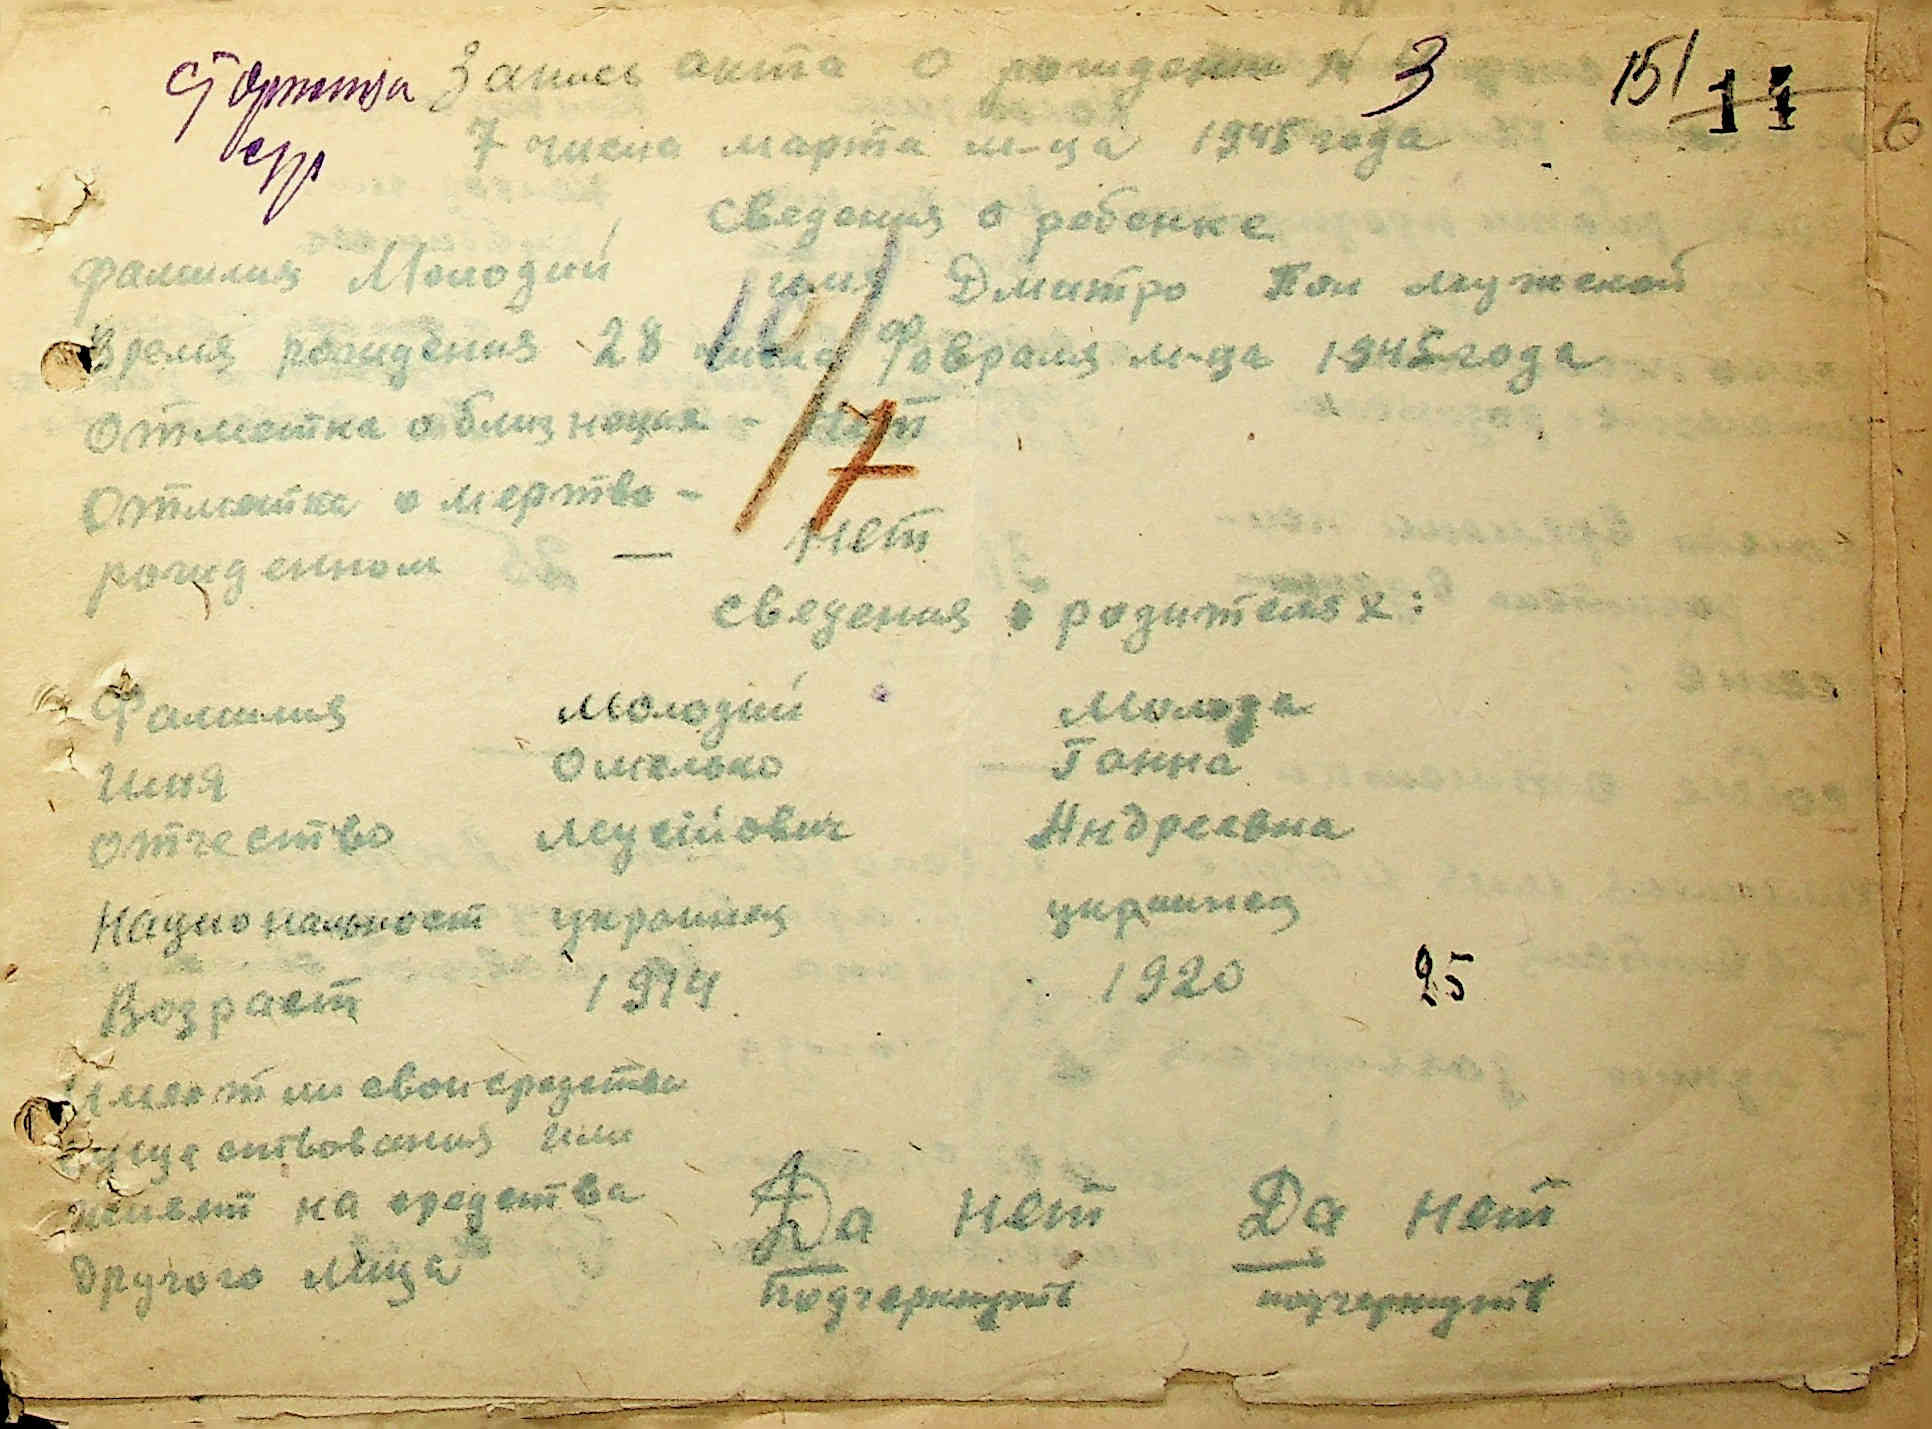 Запись акта о рождении № 3 151 14
7 числа марта м-ца 1945 года
6
сведения о ребенке
фамилия Молодий имя Дмитро Пол мужской
время рождения 28 числа Февраля м-ца 1945 года
10/7
отметка о близнецах - нет
отметка о мертво-
рожденном — нет
сведения о родителях:
Фамилия Молодий Молода
имя Омелько Ганна
отчество Мусійович Андреевна
Национальност украинец украинец
Возраст 1914 1920 25
имеют ли свои средства
существования или
живет на средства
другого лица Да нет Да нет
подчеркнуть подчеркнуть